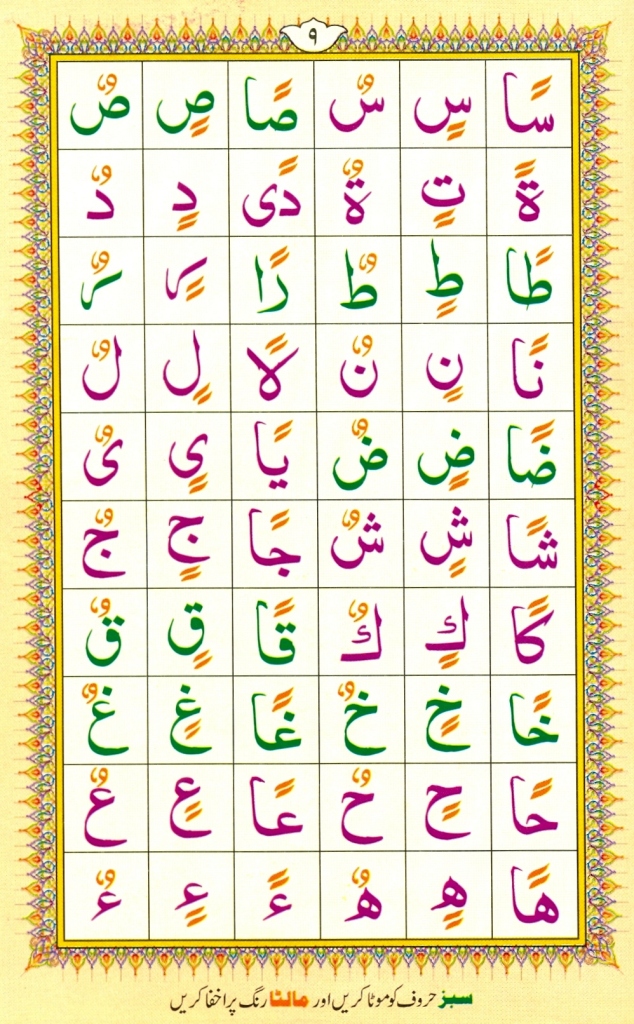 ۹
سًا سٍ سٌ صًا صٍ صٌ
ةً تٍ ةٌ دًی دٍ دٌ
طًا طٍ طٌ رًا رٍ رٌ
نًا نٍ نٌ لًا لٍ لٌ
ضًا ضٍ ضٌ یًا یٍ یٌ
شًا شٍ شٌ جًا جٍ جٌ
كًا كٍ كٌ قًا قٍ قٌ
خًا خٍ خٌ غًا غٍ غٌ
حًا حٍ حٌ عًا عٍ عٌ
هًا هٍ هٌ ءً ءٍ ءٌ
سبز حروف کو موٹا کریں اور مالٹا رنگ پر اخفا کریں